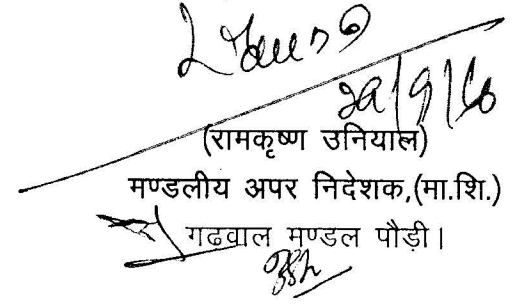 (रामकृष्ण उनियाल)
मण्डलीय अपर निदेशक,(मा.शि.)
गढवाल मण्डल पौड़ी।